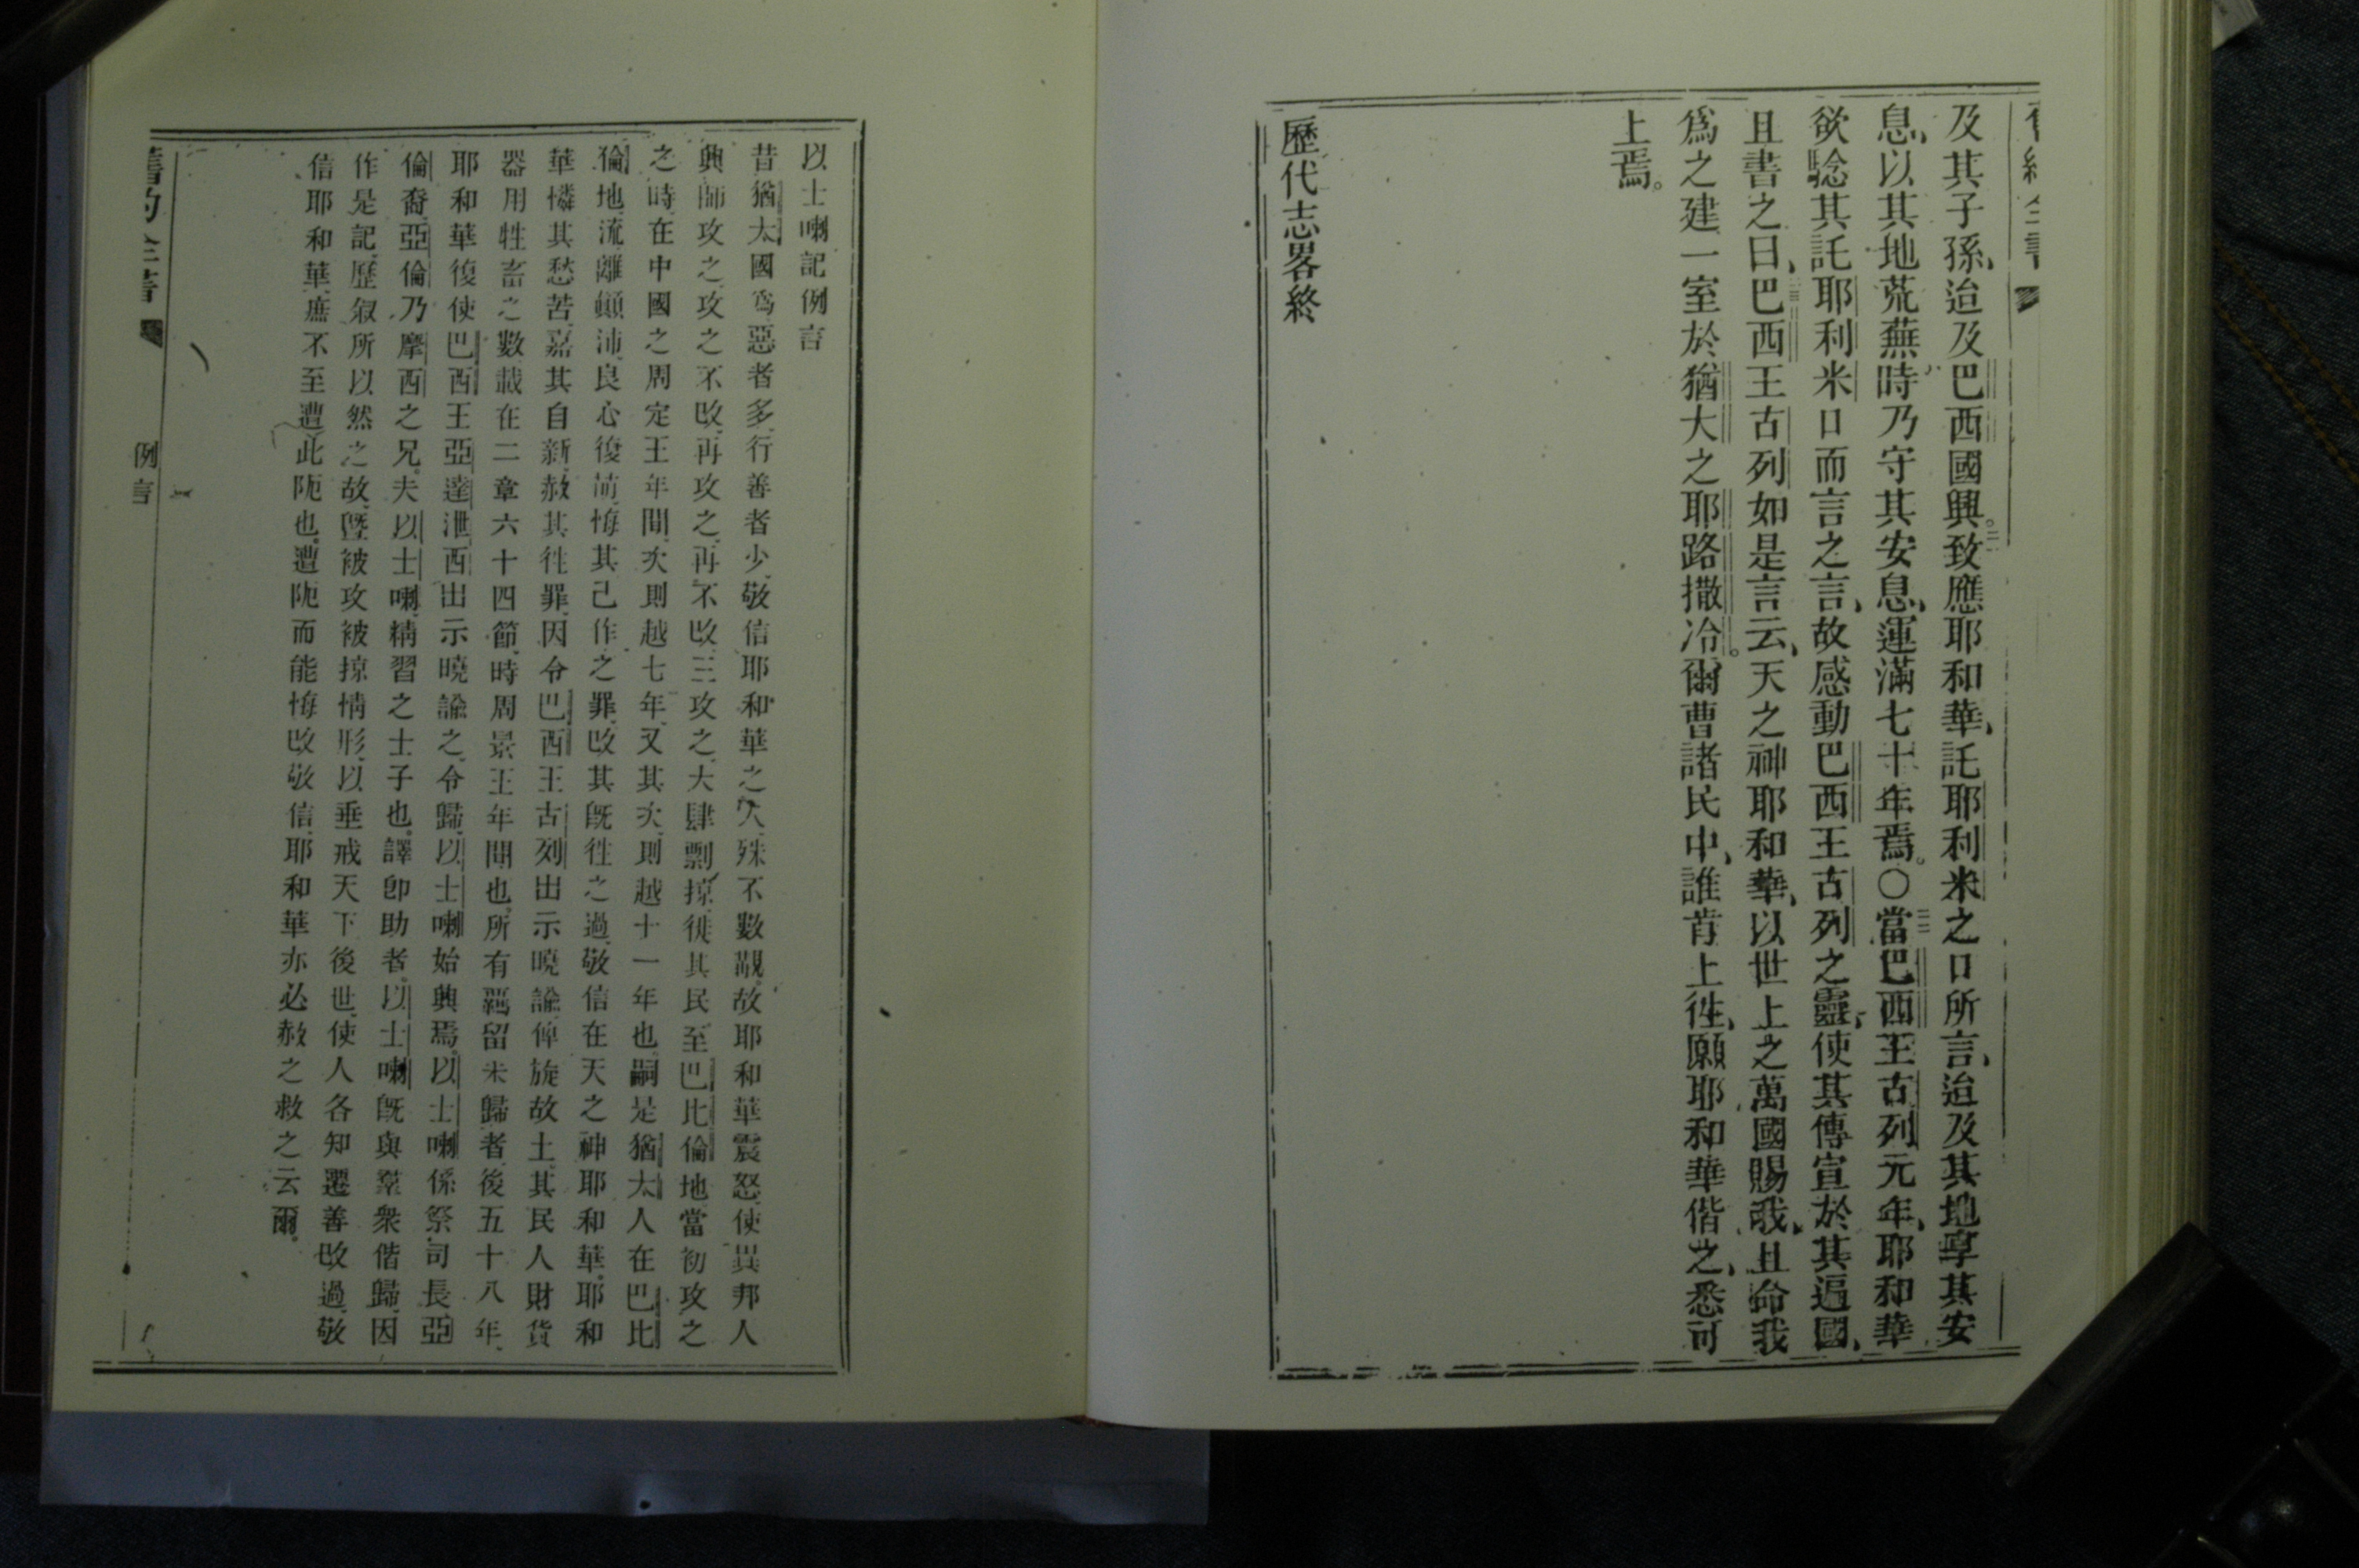 及其子孫、迨及巴西國興。致應耶和華、託耶利米之口所言、迨及其地享其安
息、以其地荒蕪時乃守其安息、運滿七十年焉。〇當巴西王古列元年、耶和華
欲騐其託耶利米口而言之言、故感動巴西王古列之靈、使其傳宣於其遍國、
且書之曰、巴西王古列如是言云、天之神耶和華、以世上之萬國賜我、且命我
爲之建一室於猶大之耶路撒冷。爾曹諸民中、誰肯上徃、願耶和華偕之、悉可
上焉。
歷代志畧終
以士喇記例言
昔猶太國爲惡者多、行善者少、敬信耶和華之人、殊不數覯。故耶和華震怒、使異邦人
興師攻之、攻之不改、再攻之、再不改、三攻之、大肆剽掠、徙其民至巴比倫地、當初攻之
之時、在中國之周定王年間、次則越七年、又其次、則越十一年也、嗣是猶太人在巴比
倫地、流離顛沛、良心復萌、悔其己作之罪、改其旣徃之過、敬信在天之神耶和華、耶和
華憐其愁苦、嘉其自新、赦其徃罪、因令巴西王古列出示曉諭、俾旋故土、其民人財貨
器用牲畜之數、載在二章六十四節、時周景王年間也、所有羈留未歸者、後五十八年、
耶和華復使巴西王亞達泄西出示曉諭之、令歸、以士喇始興焉。以士喇係祭司長亞
倫裔、亞倫乃摩西之兄、夫以士喇、精習之士子也、譯卽助者。以士喇旣與羣衆偕歸、因
作是記、歷叙所以然之故、曁被攻被掠情形、以垂戒天下後世、使人各知遷善改過、敬
信耶和華、庶不至遭此阨也、遭阨而能悔改敬信、耶和華亦必赦之救之云爾。
例言